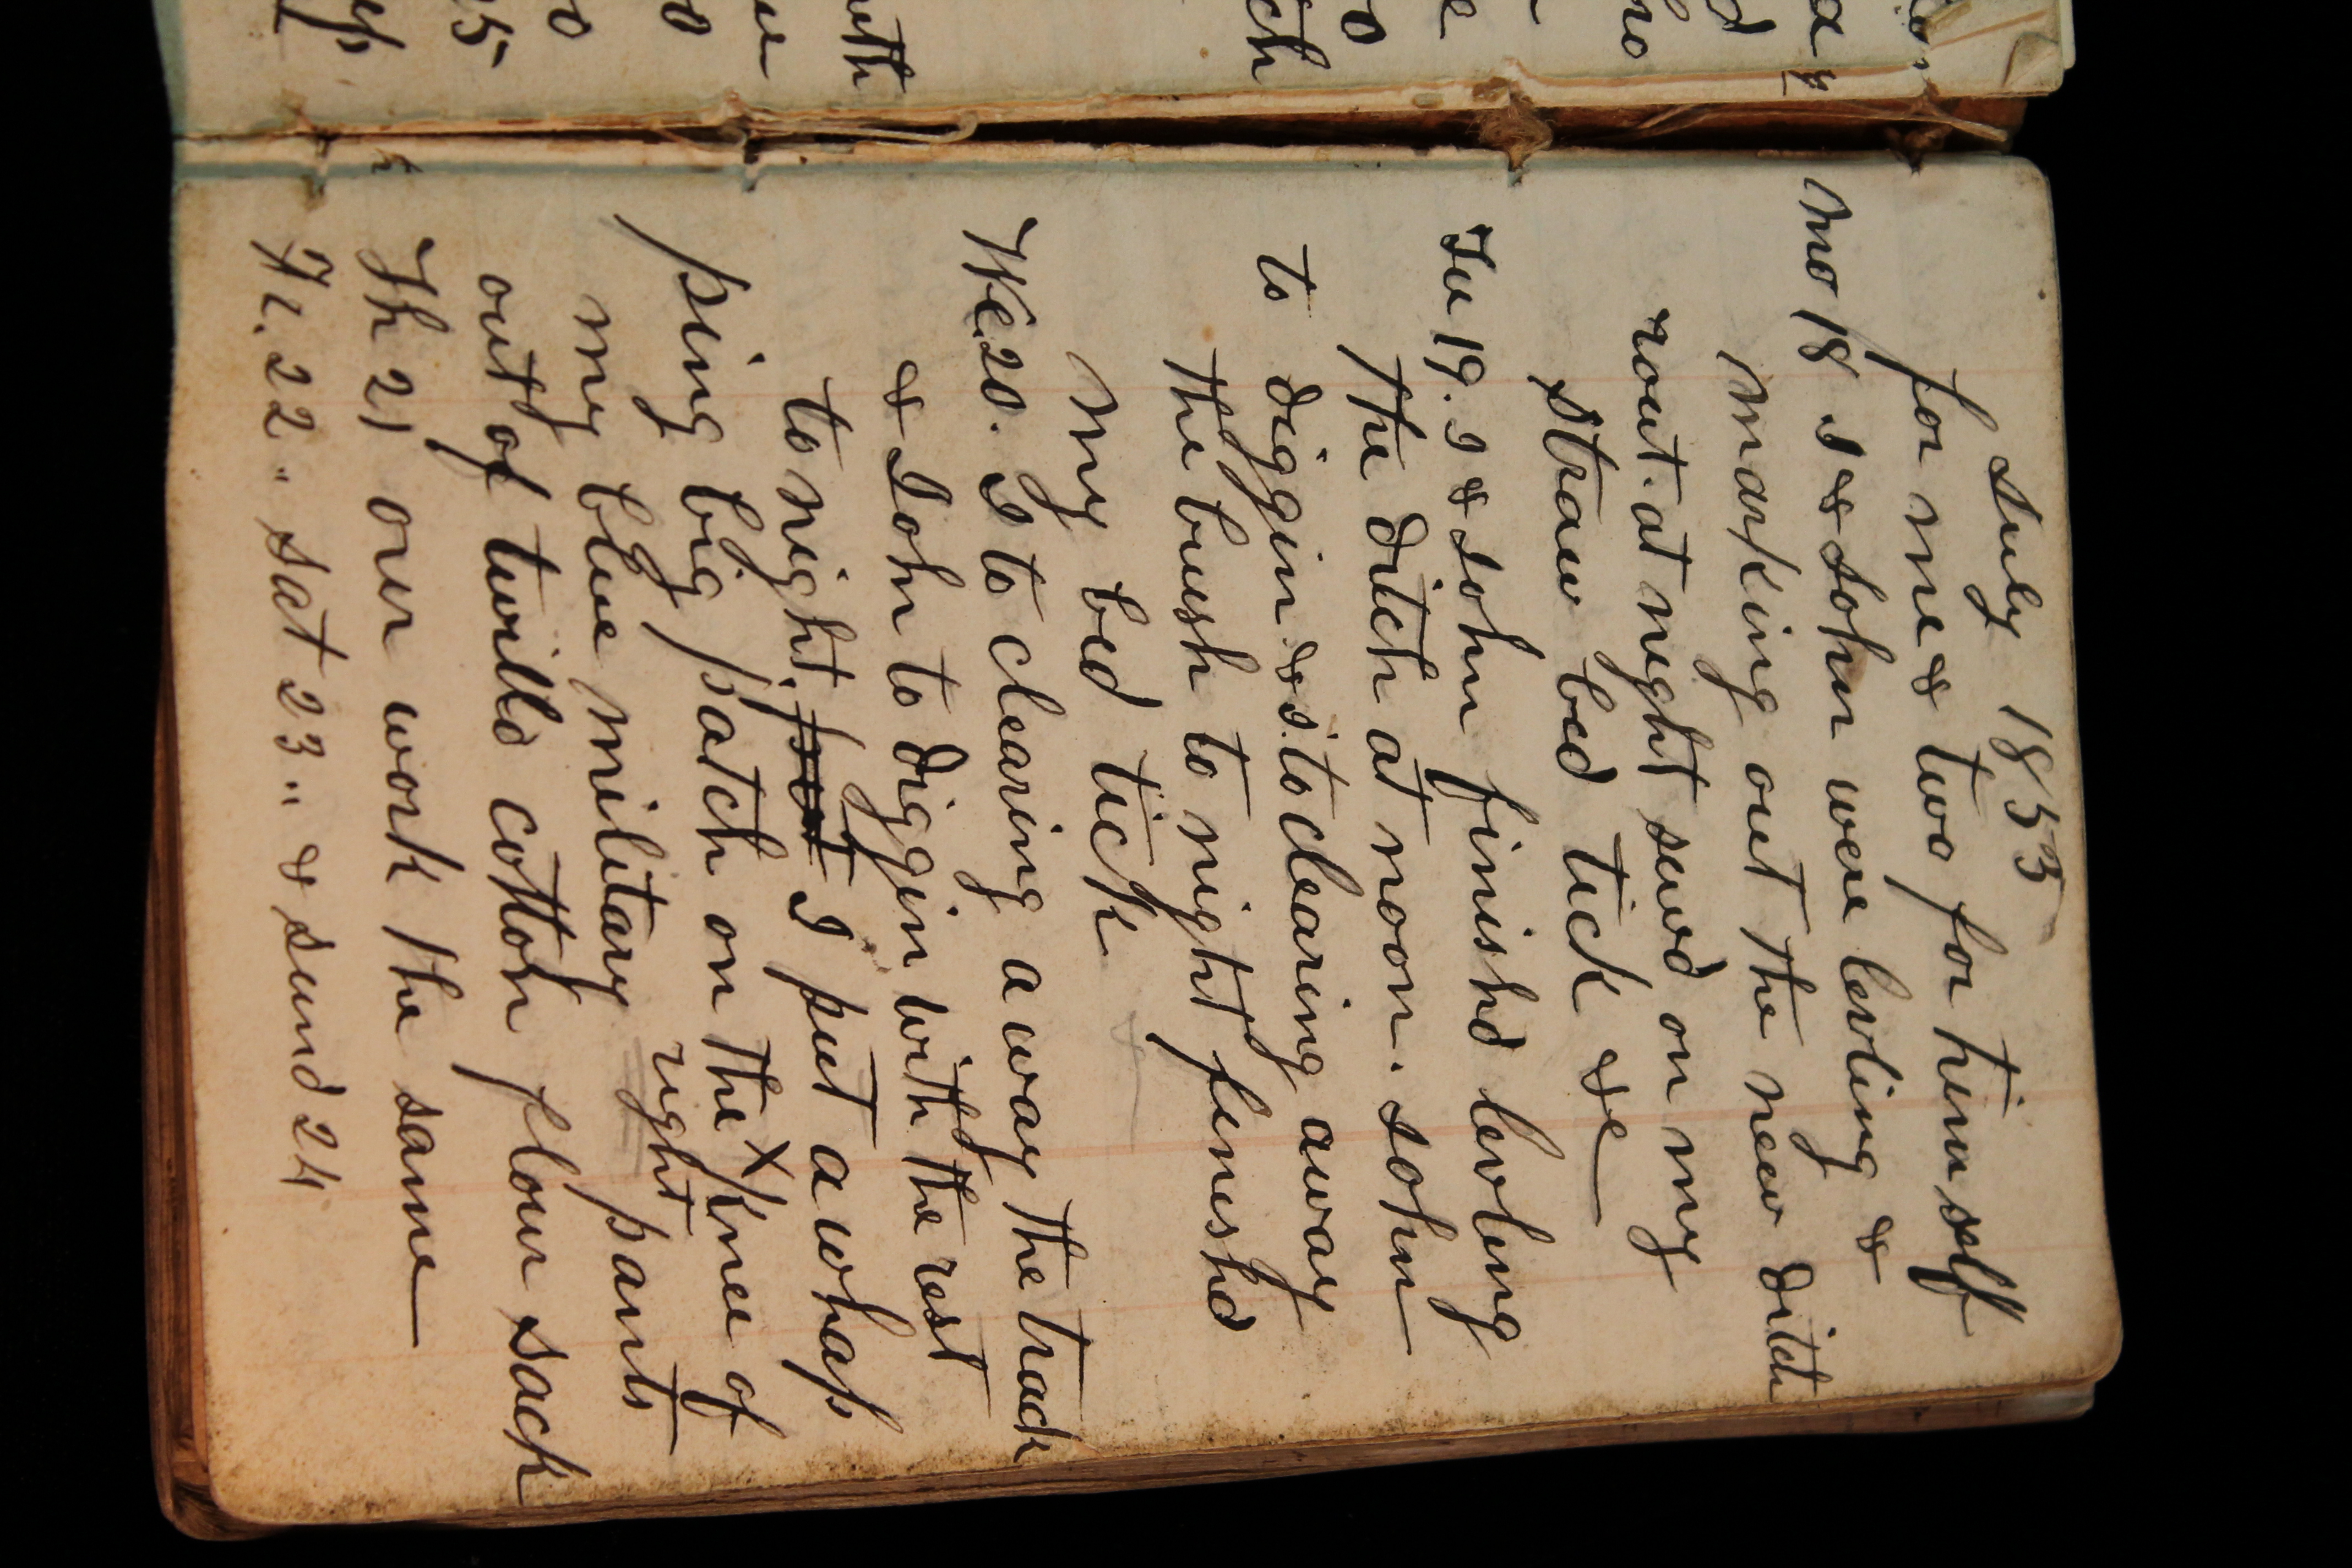 July 1853
for me & two for him self
Mo 18 I & John were levling &
marking out the new ditch
rout. at night sewd on my
straw bed tick &c
Tu 19. I & John finishd levling
the ditch at noon. John
to diggin & I. to clearing away
the brush to night finishd
my bed tick
We. 20. I to clearing a way the track
& John to diggin with the rest
to night. put I put a whap
ping big patch on the x knee of
right
my blue military pants
out of twilld cotton flour sack
Th 21 our work the same
Fr. 22 " Sat 23 " & Sund 24